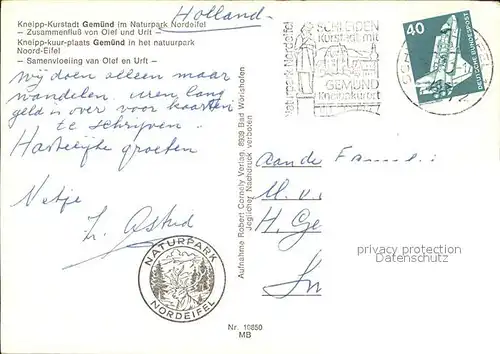 Kneipp-Kurstadt Gemünd im Naturpark Nordeifel
– Zusammenfluß von Olef und Urft –
Kneipp-kuur-plaats Gemünd in het natuurpark
Noord-Eifel
– Samenvloeiing van Olef en Urft –
Holland
Wij doen alleen maar
wandelen. uren lang
geld is over voor kaarten
te schrijven.
Hartelijke groeten
Netje
Z. Astrid
NATURPARK
NORDEIFEL
Aufnahme Robert Cornely Verlag, 8939 Bad Wörishofen
Jeglicher Nachdruck verboten
Nr. 10850
MB
Naturpark Nordeifel
SCHLEIDEN
Kurstadt mit
GEMÜND
Kneippkurort
40
DEUTSCHE BUNDESPOST
Aan de Fam
M. v.
H. Ge
privacy protection
privacy protection